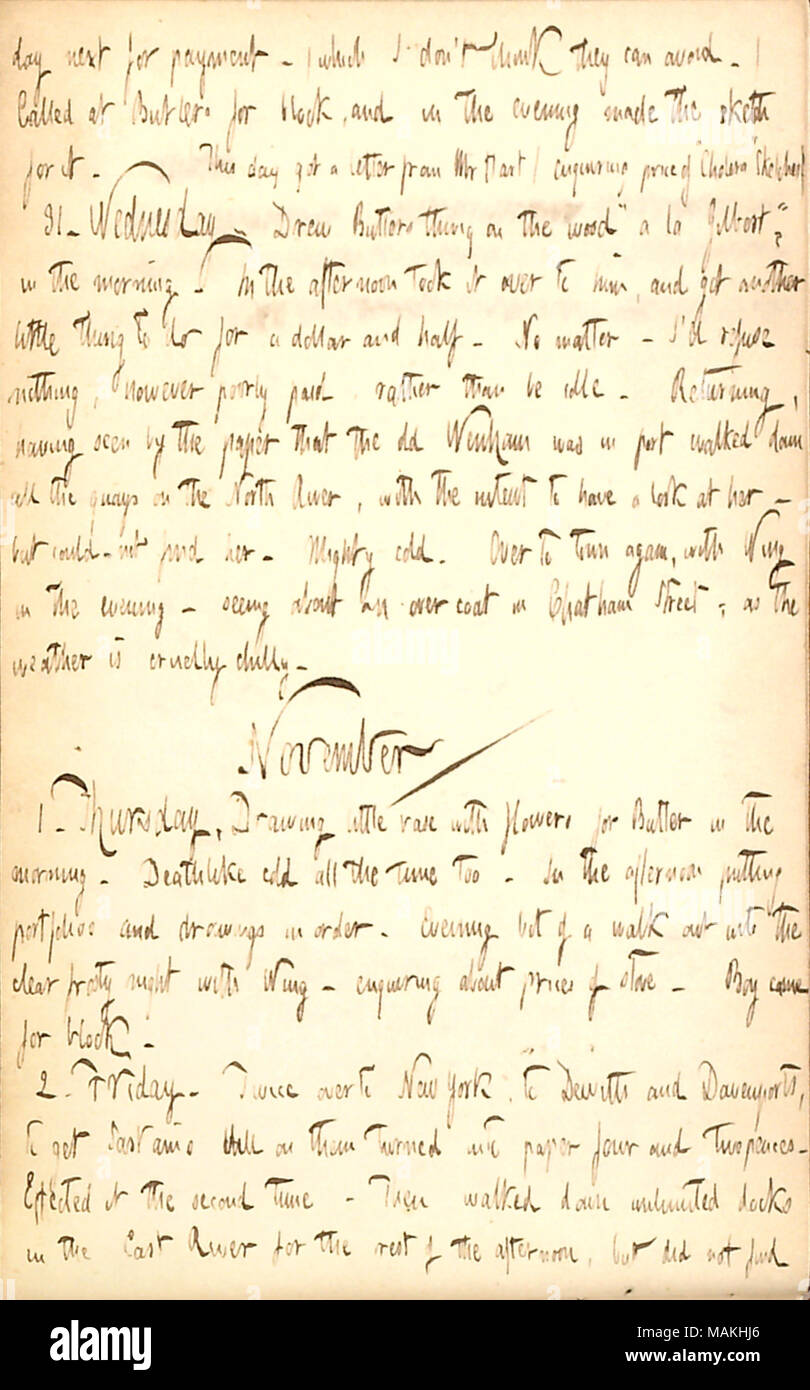 day next for payment - (which I don't think they can avoid - )
Called at Butlers for block, and in the evening made the sketch
for it - This day got a letter from Mr Hart (enquiring price of "Cholera" Sketches)
31 - Wednesday - Drew Butlers thing on the wood "a la Gilbert",
in the morning - In the afternoon took it over to him, and got another
little thing to do for a dollar and half - No matter - I'd refuse
nothing, however poorly paid rather than be idle - Returning,
having seen by the paper that the old Wenham was in port walked down
all the quays on the North River, with the intent to have a look at her -
but could-not find her - Mighty cold. Over to town again, with Wing
in the evening - seeing about an over coat in Chatham Street, as the
weather is cruelly chilly -
November
1 - Thursday, Drawing little vase with flowers for Butler in the
morning - Deathlike cold all the time too - In the afternoon putting
portfolios and drawings in order - Evening bit of a walk out into the
clear frosty night with Wing - enquiring about prices of stove - Boy came
for block -
2 - Friday - Twice over to New York, to Dewitts and Davenports,
to get bill on them turned into paper four and twopences -
Effected it the second time - Then walked down unlimited docks
in the East River for the rest of the afternoon, but did not find
alamy
Image ID: MAKHJ6
www.alamy.com